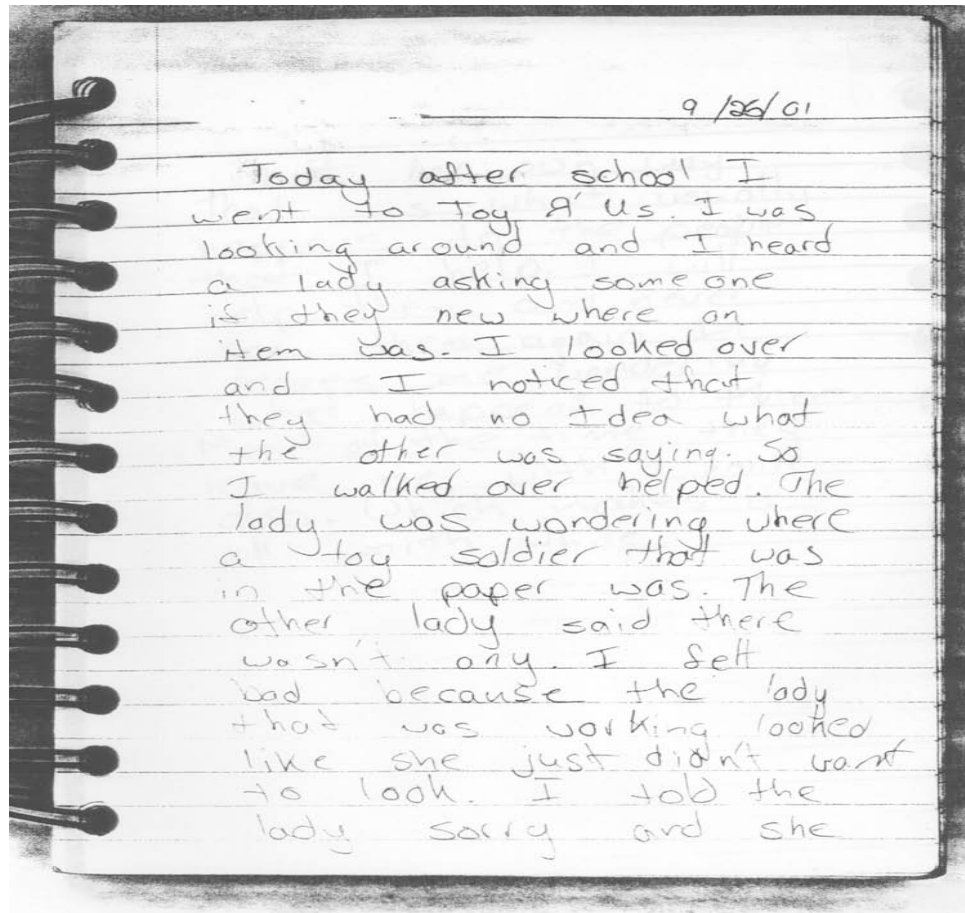 9/26/01
Today after school I
went to Toy R' Us. I was
looking around and I heard
a lady asking someone
if they new where an
item was. I looked over
and I noticed that
they had no Idea what
the other was saying. So
I walked over helped. The
lady was wondering where
a toy soldier that was
in the paper was. The
other lady said there
wasn't any. I felt
bad because the lady
that was working looked
like she just didn't want
to look. I told the
lady sorry and she